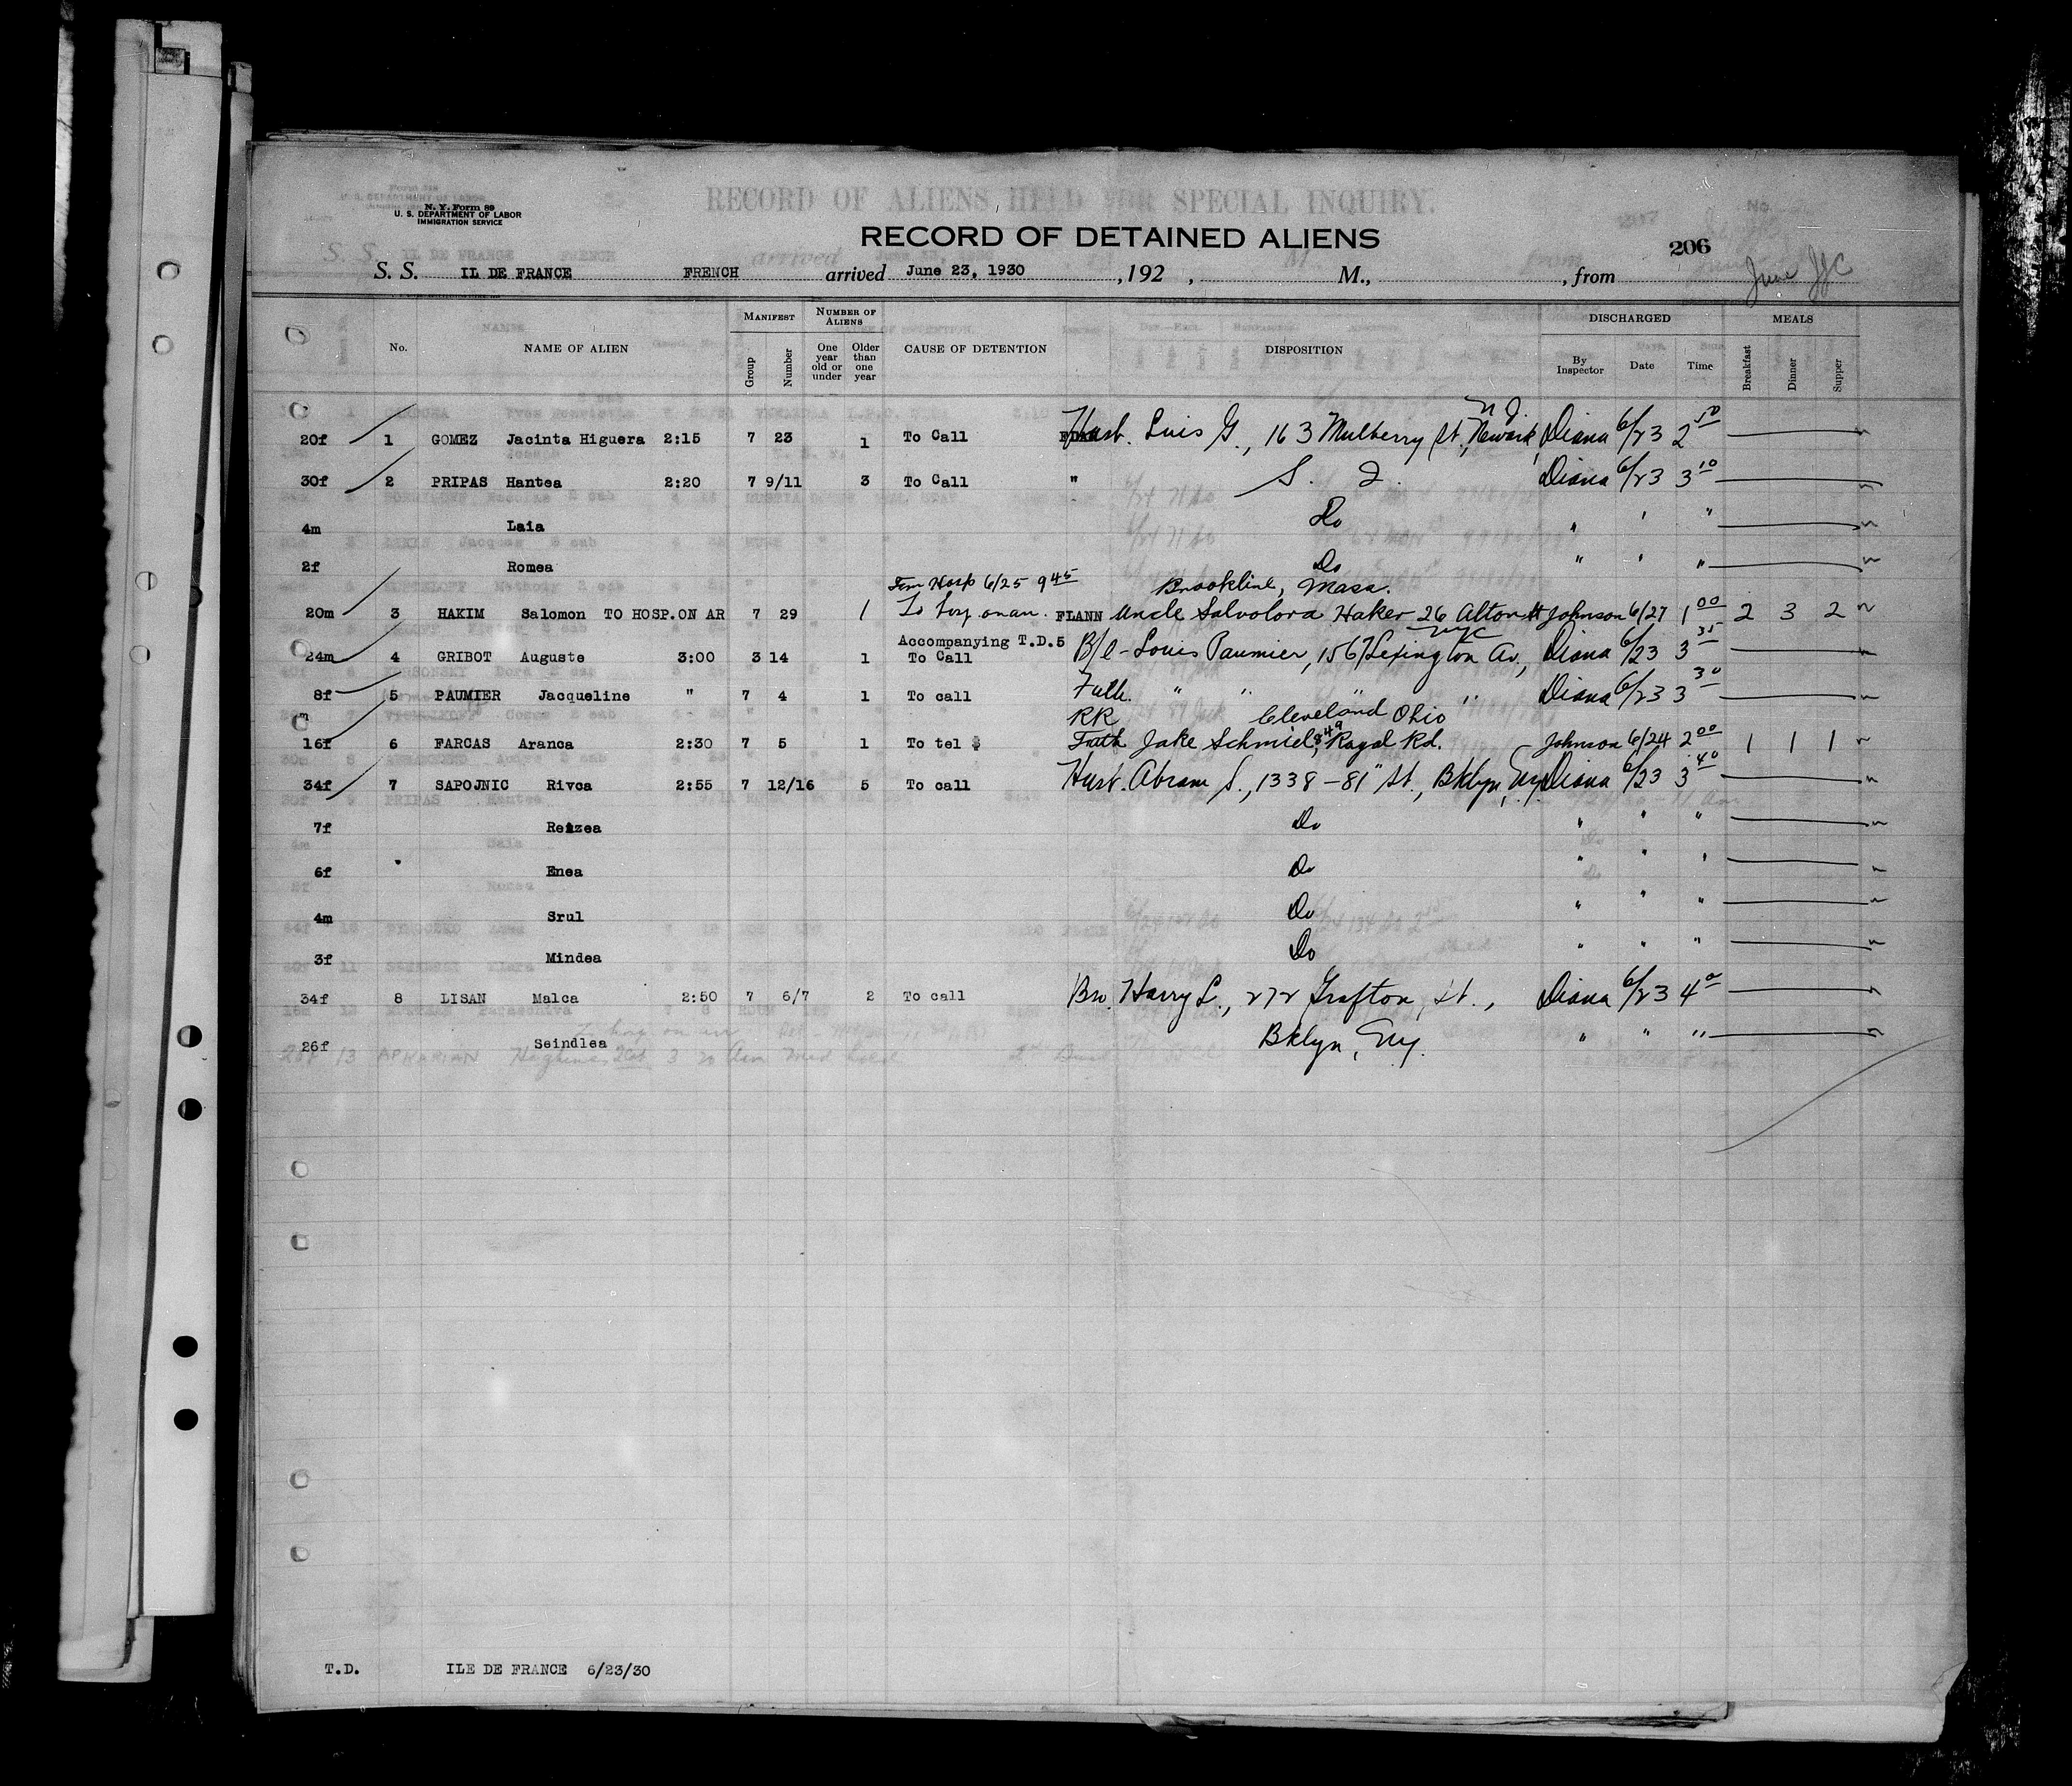 N. Y. Form 89
U. S. DEPARTMENT OF LABOR
IMMIGRATION SERVICE
RECORD OF ALIENS HELD FOR SPECIAL INQUIRY.
RECORD OF DETAINED ALIENS
206
S. S. IL DE FRANCE FRENCH arrived June 23, 1930, 192 , M., , from
June
No. NAME OF ALIEN MANIFEST Group Number NUMBER OF ALIENS One year old or under Older than one year CAUSE OF DETENTION DISPOSITION DISCHARGED By Inspector Date Time MEALS Breakfast Dinner Supper
N.J.
20f 1 GOMEZ Jacinta Higuera 2:15 7 23 1 To Call Husb. Luis G., 163 Mulberry St., Newark, Diana 6/23 2 50
30f 2 PRIPAS Hantea 2:20 7 9/11 3 To Call " S. I. Diana 6/23 3 10
4m Laia Do " ' "
2f Romea Do " ' "
Fm Hosp 6/25 9 45 Brookline, Mass.
20m 3 HAKIM Salomon TO HOSP.ON AR 7 29 1 To hosp on arr. FLANN Uncle Salvolora Haker 26 Alton St Johnson 6/27 1 00 2 3 2
Accompanying T.D.5 NYC
24m 4 GRIBOT Auguste 3:00 3 14 1 To Call B/l - Louis Paumier, 1567 Lexington Av., Diana 6/23 3 35
8f 5 PAUMIER Jacqueline " 7 4 1 To call Fath. " " " " Diana 6/23 3 30
m RR Cleveland Ohio
16f 6 FARCAS Aranca 2:30 7 5 1 To tel $ Fath Jake Schmiel, 849 Royal Rd. Johnson 6/24 2 00 1 1 1
34f 7 SAPOJNIC Rivca 2:55 7 12/16 5 To call Husb. Abram S., 1338 - 81" St., Bklyn, Ny. Diana 6/23 3 40
7f Reizea Do " " "
6f Enea Do " " '
4m Srul Do " " "
3f Mindea Do " " "
34f 8 LISAN Malca 2:50 7 6/7 2 To call Bro. Harry L., 272 Grafton, St., Diana 6/23 4 00
26f Seindlea Bklyn, Ny. " " "
T.D. ILE DE FRANCE 6/23/30